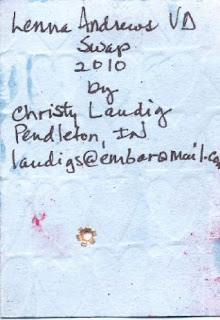 Lenna Andrews VD
Swap
2010
by
Christy Laudig
Pendleton, IN
laudigs@embarqmail.com